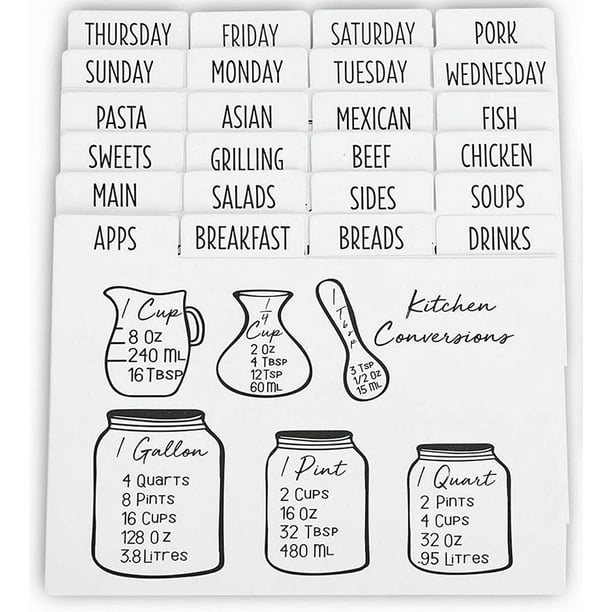 THURSDAY FRIDAY SATURDAY PORK
SUNDAY MONDAY TUESDAY WEDNESDAY
PASTA ASIAN MEXICAN FISH
SWEETS GRILLING BEEF CHICKEN
MAIN SALADS SIDES SOUPS
APPS BREAKFAST BREADS DRINKS
1 Cup
8 Oz
240 ML
16 TBSP
1/4
Cup
2 Oz
4 TBSP
12 TSP
60 ML
1 Tbsp
3 TSP
1/2 OZ
15 ML
Kitchen
Conversions
1 Gallon
4 QUARTS
8 PINTS
16 CUPS
128 OZ
3.8 LITRES
1 Pint
2 CUPS
16 OZ
32 TBSP
480 ML
1 Quart
2 PINTS
4 CUPS
32 OZ
.95 LITRES